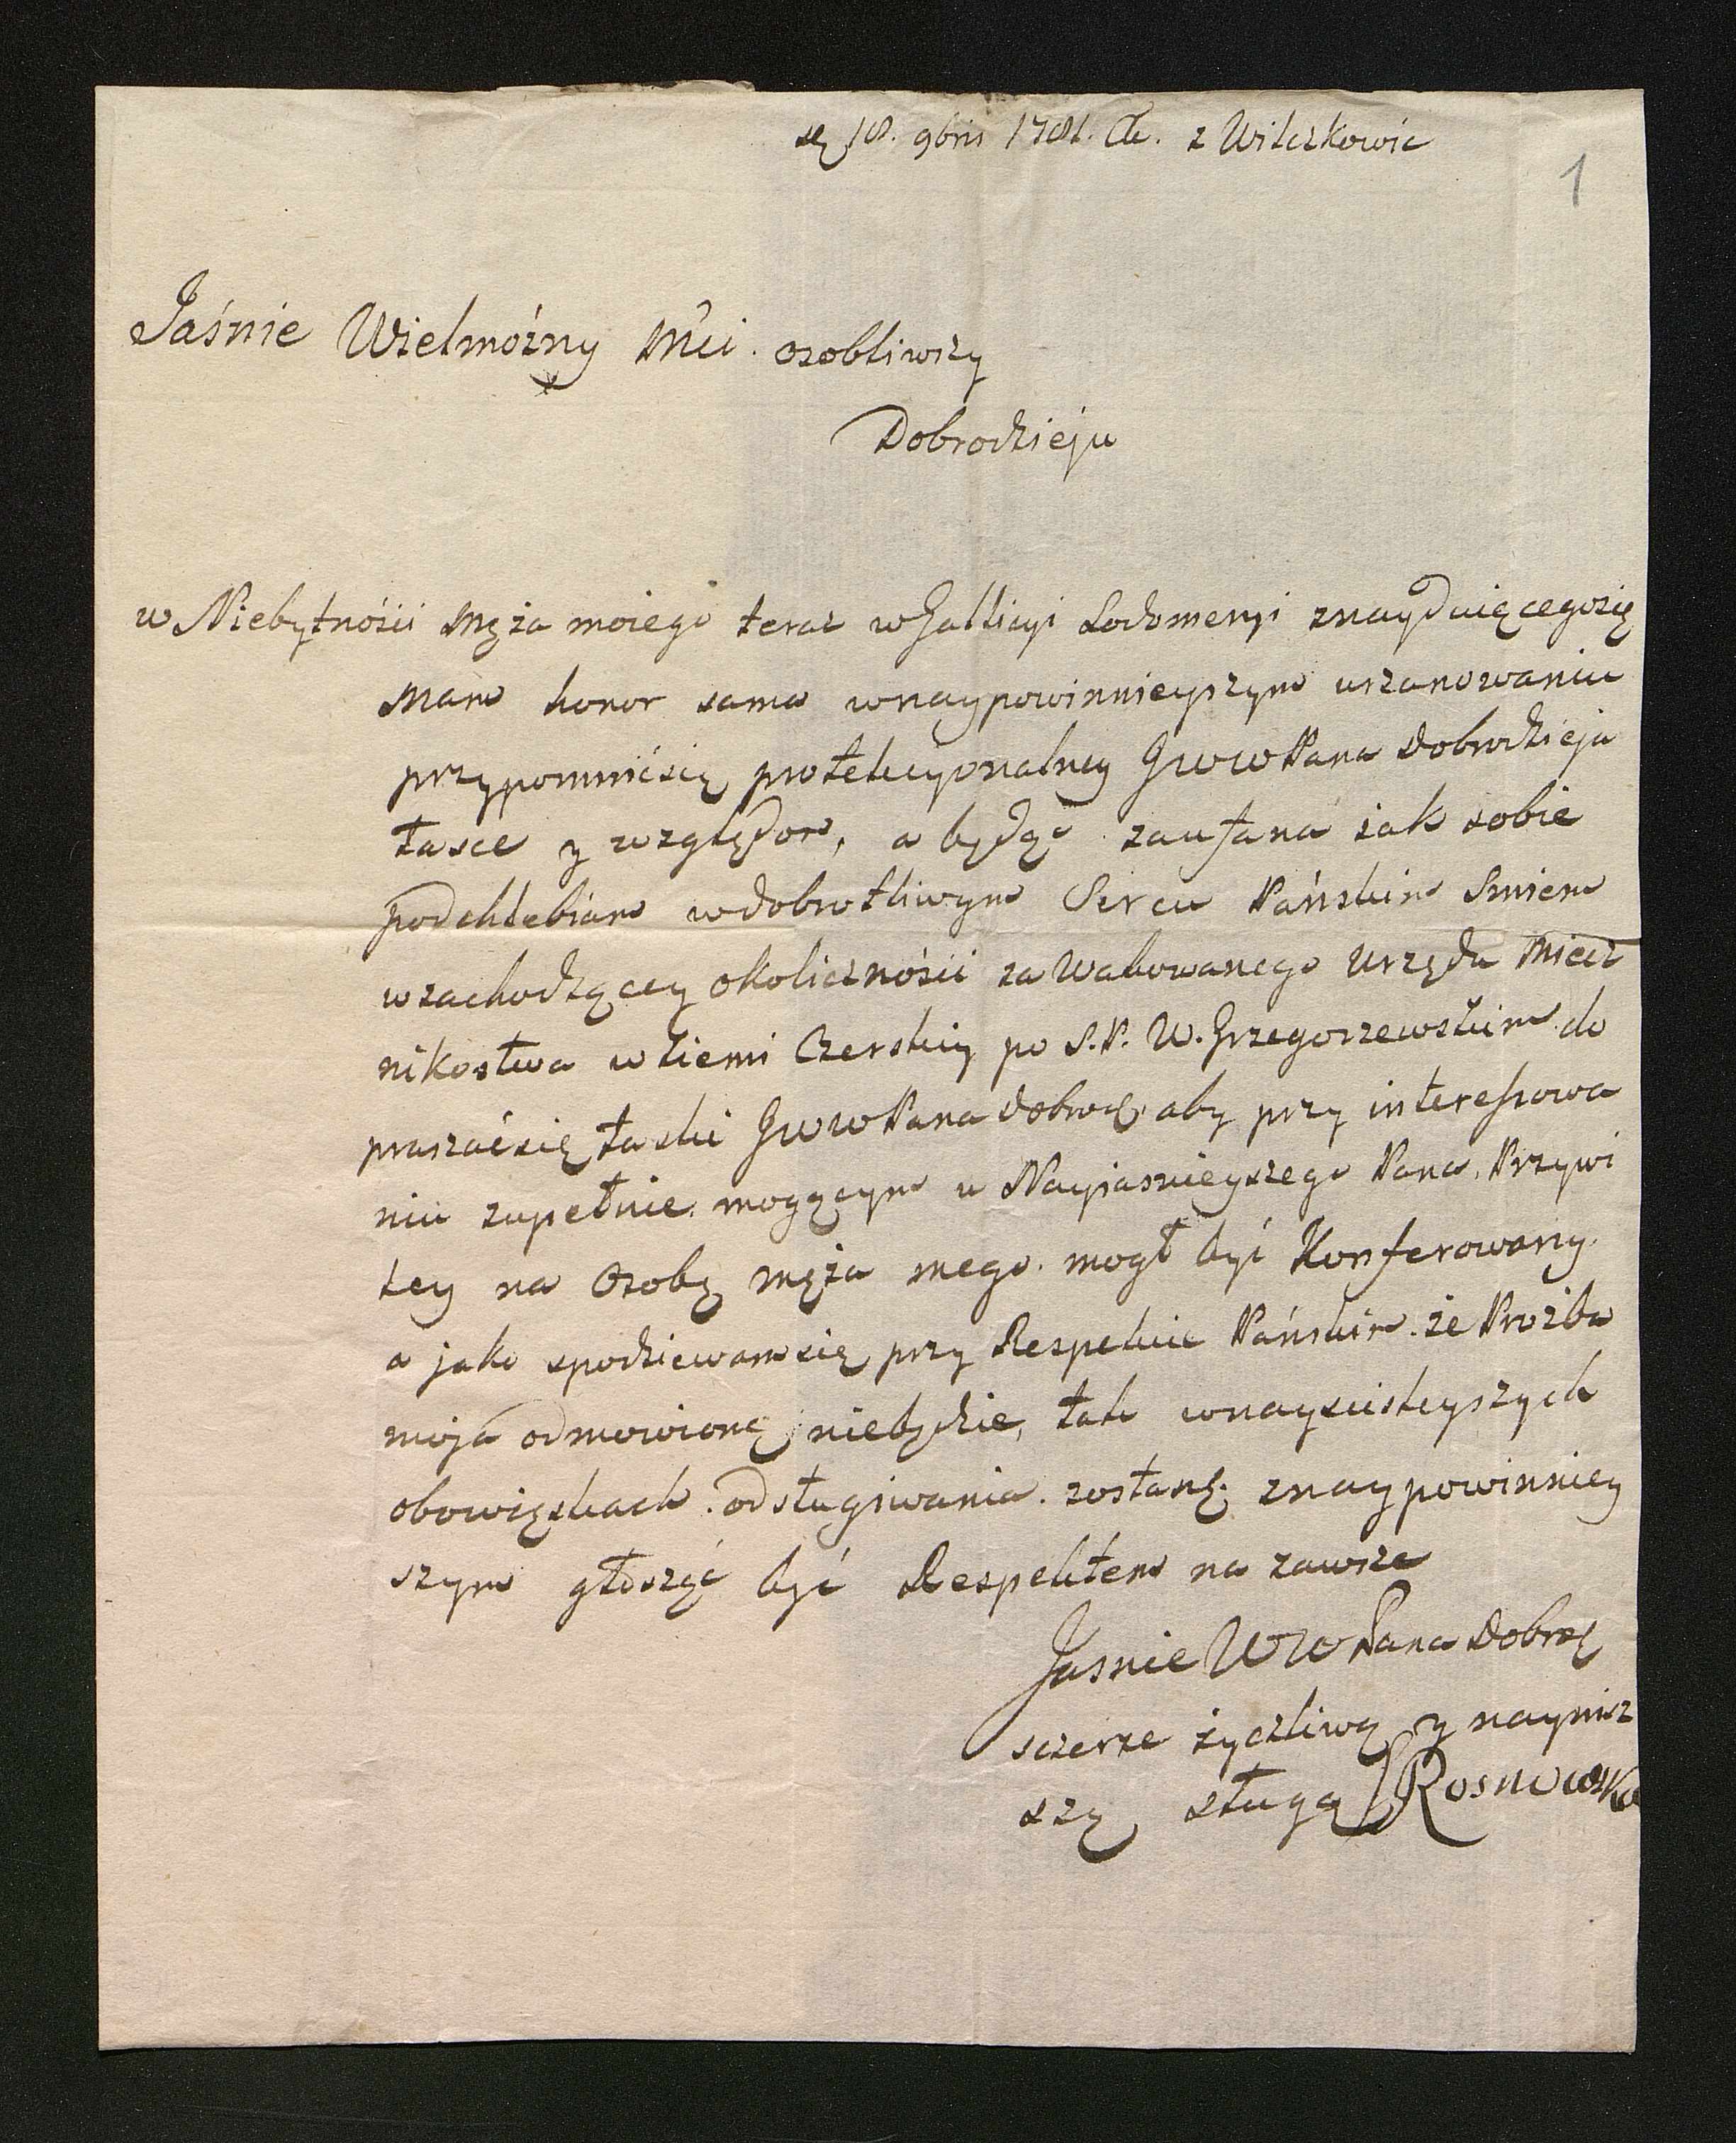 18. 9bris 1781. z Wilczkowic
1
Jaśnie Wielmożny Mci. osobliwszy
Dobrodzieju
w Niebytnósci Męża moiego teraz w Gallicyi Lodomeryi znayduięcegosię
Mam honor sama wnaypowinnieyszym uszanowaniu
przypomniésię protekcyonalney JWW Pana Dobrodzieja
łasce y względom, a będąc zaufana iak sobie
podchlebiam wdobrotliwym Sercu Pańskim Smiem
wzachodzący okolicznósci zawakowanego Urzędu Miecz
nikostwa w Ziemi Czerskiy po S.P. W. Grzegorzewskim do
praszaćsię łaski JWW Pana Dobrodz, aby przy interessowa
niu zupełnie mogącym u Nayiasnieyszego Pana, Przywi
ley na Osobę męża mego mogł być Konferowany.
a jako spodziewamsię przy Respekcie Pańskim. że Proźba
moja odmowioną niebędzie, tak wnayscisleyszych
obowiązkach. odsługiwania. zostanę. znaypowinniey
szym głosząć być Respektem na zawsze
Jasnie WW Pana Dobrodz
sczerze życzliwą y nayniz
szą sługą Rosnowska